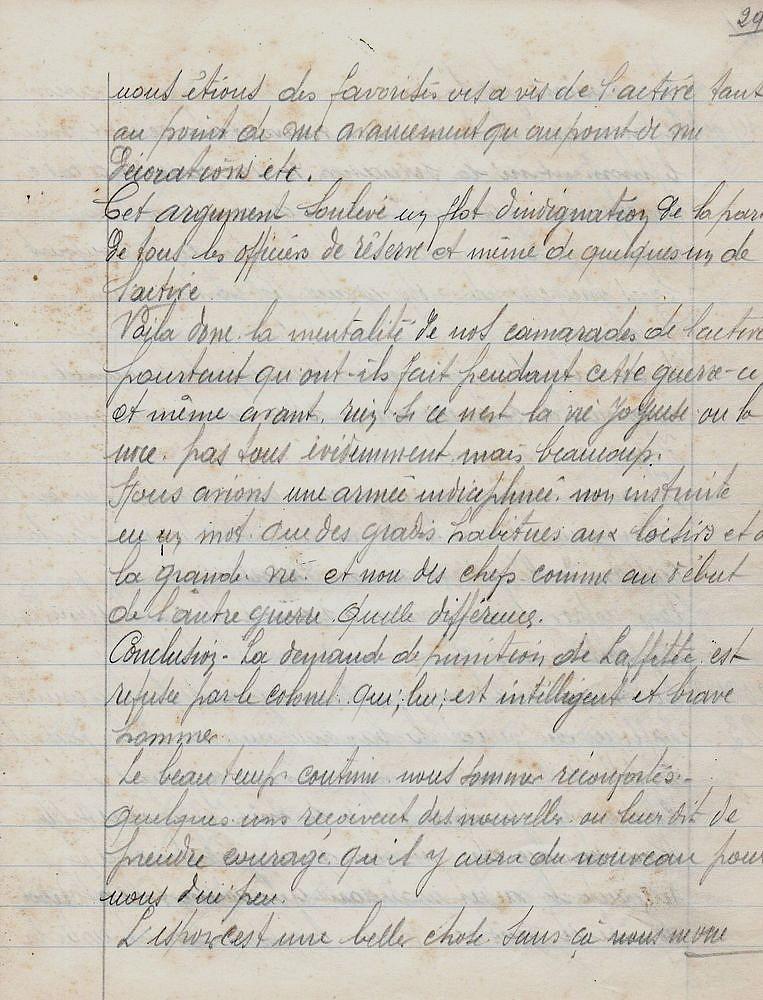 29
nous étions des favorisés vis a vis de l'active tant
au point de vue avancement qu'au point de vue
décorations etc.
Cet argument soulève un flot d'indignation de la par
de tous les officiers de réserve et même de quelques un de
l'active.
Voila donc la mentalité de nos camarades de l'active
pourtant qu'ont-ils fait pendant cette guerre-ci
et même avant, rien si ce n'est la vie joyeuse ou la
noce. pas tous évidemment mais beaucoup.
Nous avions une armée indisciplinée. non instruite
en un mot que des gradés habitués aux loisirs et a
la grande vie. et non des chefs comme au début
de l'autre guerre quelle différence.
Conclusion - La demande de punition de Laffitte est
refusée par le colonel qui, lui, est intelligent et brave
homme
Le beau temps continu nous sommes réconfortés.-
Quelques uns reçoivent des nouvelles on leur dit de
prendre courage qu'il y aura du nouveau pour
nous d'ici peu.
L'espoir est une belle chose. Sans ça nous